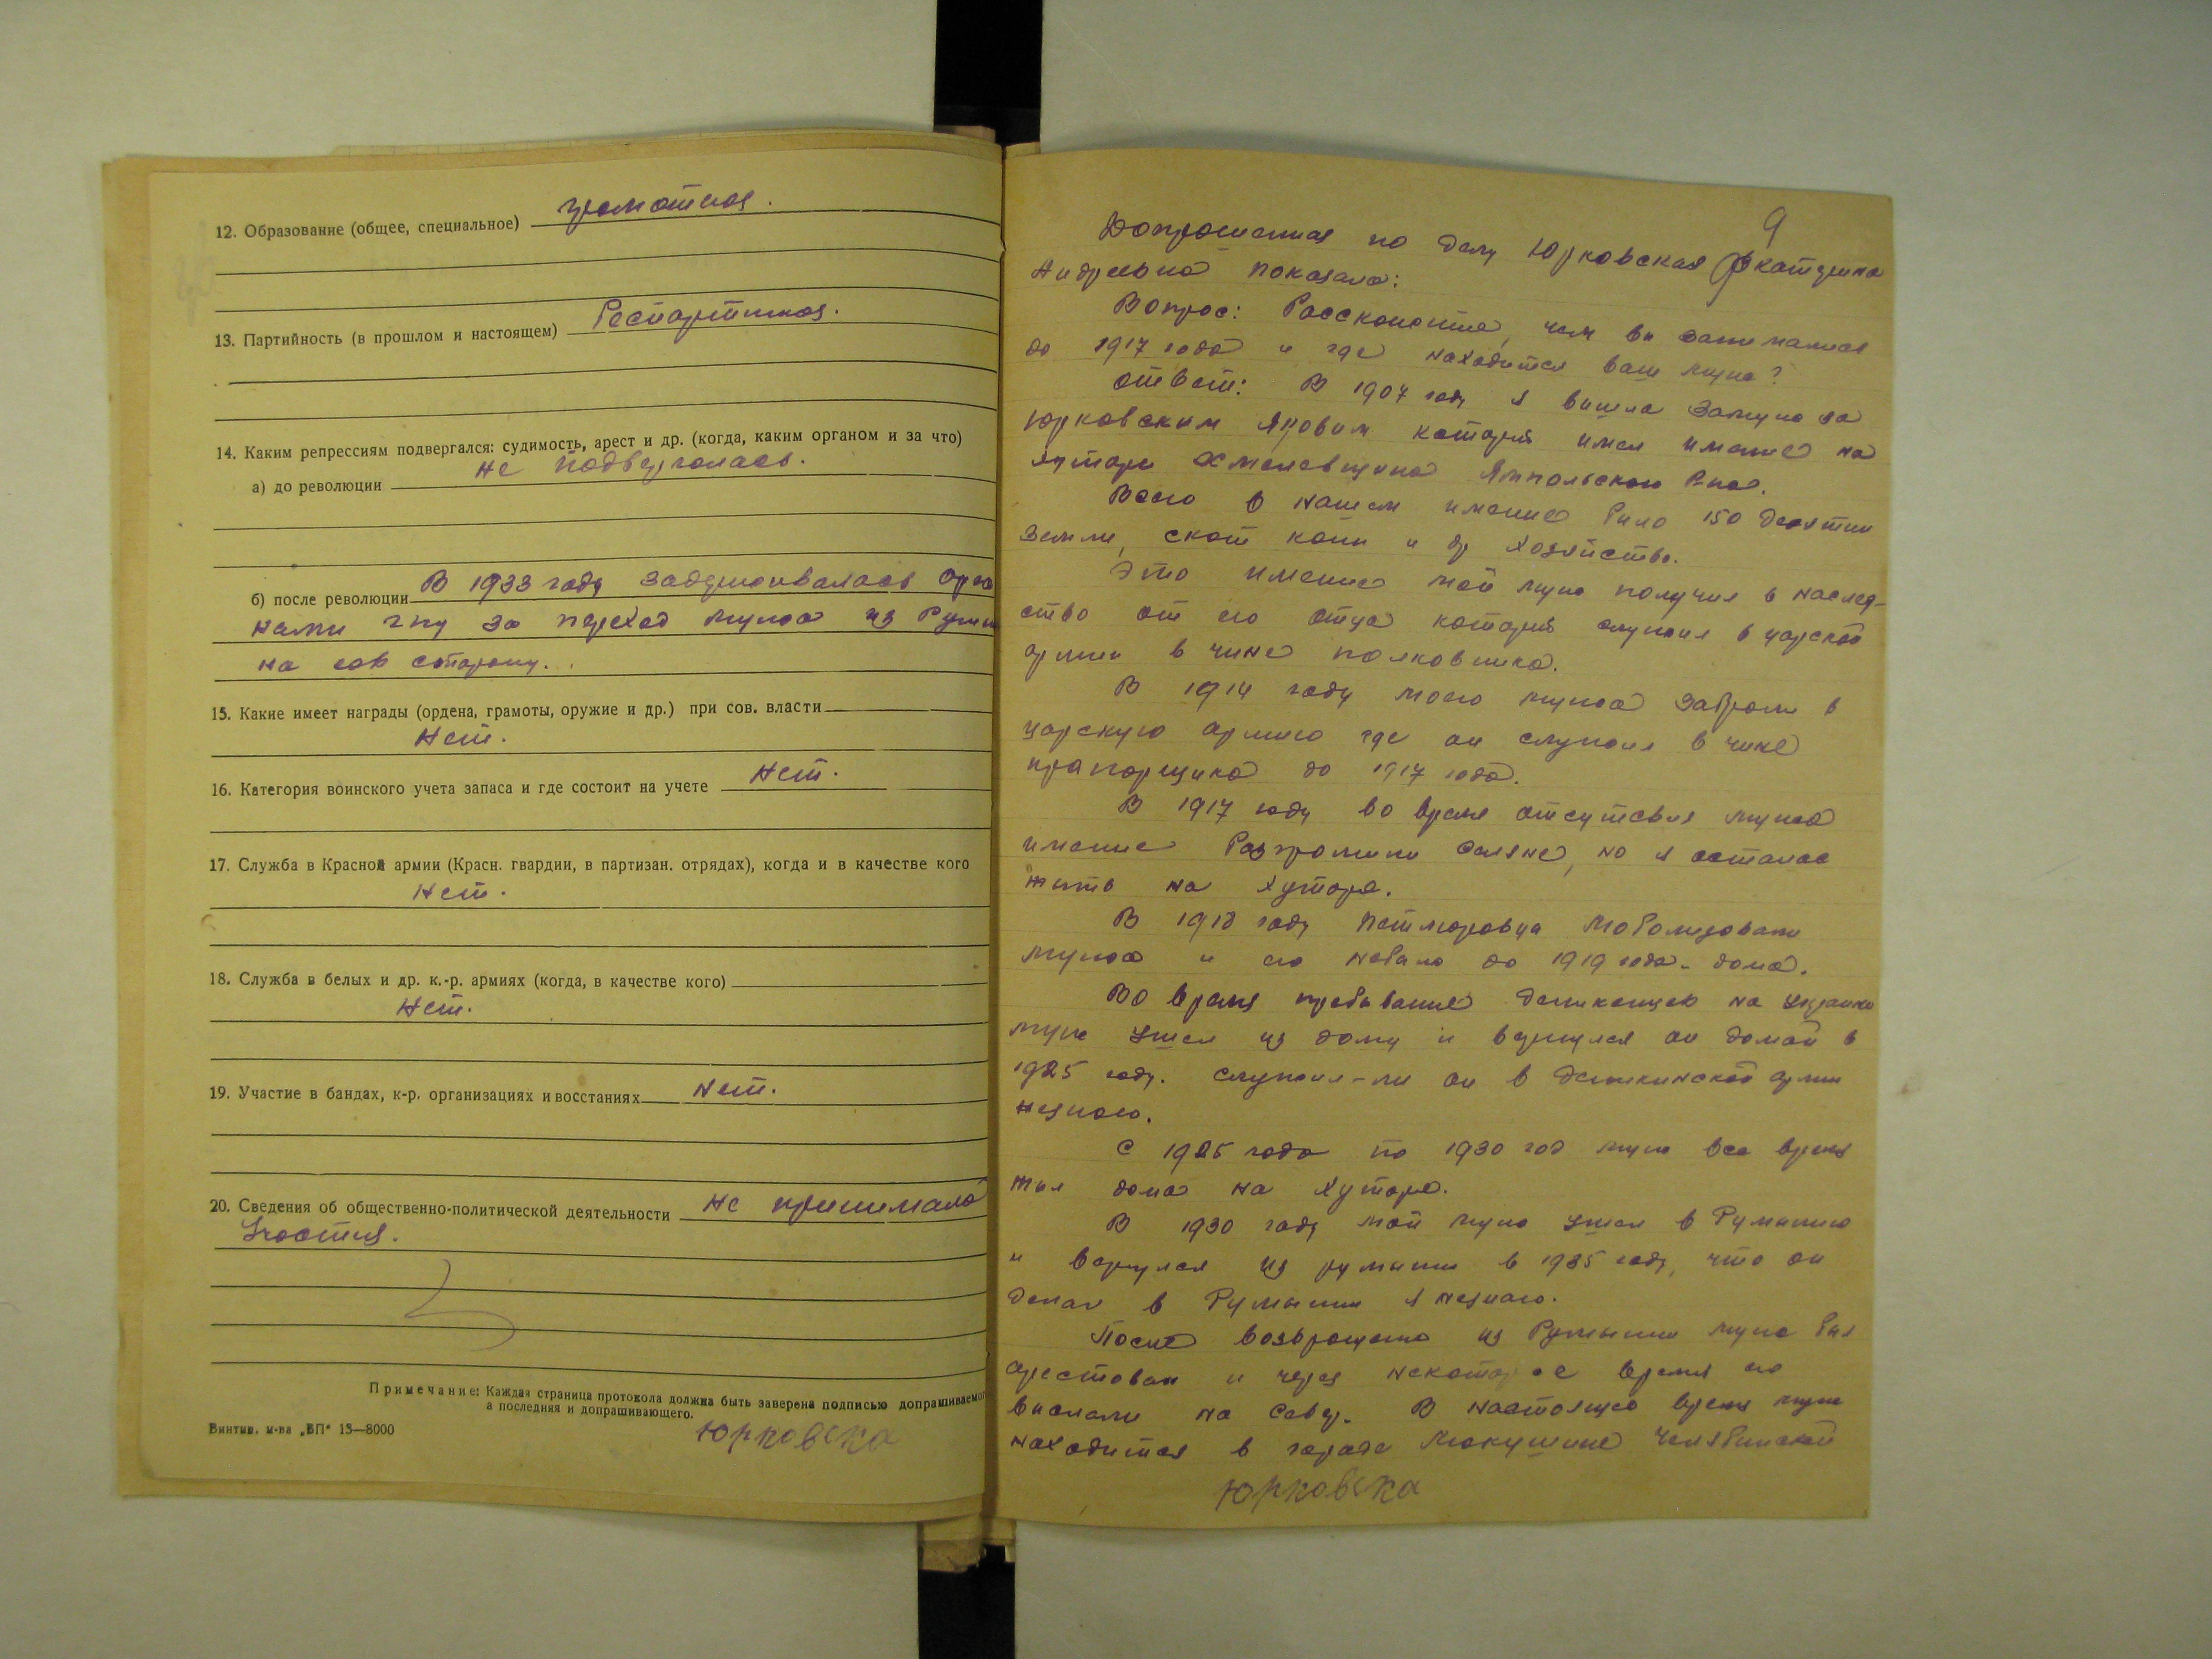 12. Образование (общее, специальное) грамотная.
13. Партийность (в прошлом и настоящем) беспартийная.
14. Каким репрессиям подвергался: судимость, арест и др. (когда, каким органом и за что)
а) до революции не подвергалась.
б) после революции В 1933 году задерживалась орга
нами гпу за переход мужа из Румын
на сов сторону.
15. Какие имеет награды (ордена, грамоты, оружие и др.) при сов. власти
Нет.
16. Категория воинского учета запаса и где состоит на учете Нет.
17. Служба в Красной армии (Красн. гвардии, в партизан. отрядах), когда и в качестве кого
Нет.
18. Служба в белых и др. к.-р. армиях (когда, в качестве кого)
Нет.
19. Участие в бандах, к-р. организациях и восстаниях Нет.
20. Сведения об общественно-политической деятельности не принимала
участия.
Примечание: Каждая страница протокола должна быть заверена подписью допрашиваемого
а последняя и допрашивающего.
Винтип. м-ва „БП" 13—8000
Юрковска
9
Допрошенная по делу Юрковская Екатерина
Андреевна показала:
Вопрос: Расскажите, чем вы занимались
до 1917 года и где находится ваш муж?
Ответ: В 1907 году я вишла замуж за
Юрковским который имел имение на
хуторе Хмелевщина Ямпольского р-на.
Всего в нашем имение било 150 десятин
земли, скот кони и др хозяйство.
Это имение мой муж получил в наслед-
ство от его отца который служил в царской
армии в чине полковника.
В 1914 году моего мужа забрали в
царскую армию где он служил в чине
прапорщика до 1917 года.
В 1917 году во время отсутсвия мужа
имение разгромили селяне, но я осталас
жить на хуторе.
В 1918 году Петлюровци моболизовали
мужа и его небило до 1919 года дома.
Во время пребивание деникенцев на Украине
муж ушел из дому и вернулся он домой в
1925 году. служил-ли он в деникинской армии
незнаю.
С 1925 года по 1930 год муж все время
жил дома на хуторе.
В 1930 году мой муж ушел в Румынию
и вернулся из румынии в 1935 году, что он
делал в Румынии я незнаю.
После возвращения из Румынии муж бил
арестован и через некоторое время его
вислали на север. В настоящее время муж
находится в городе Макушине Челябинской
Юрковска